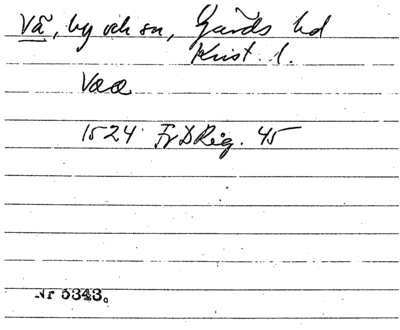 Vä, by och sn, Gärds hd
Krist. l.
Vaa
1524 Fr D Reg. 45
Nr 5343.